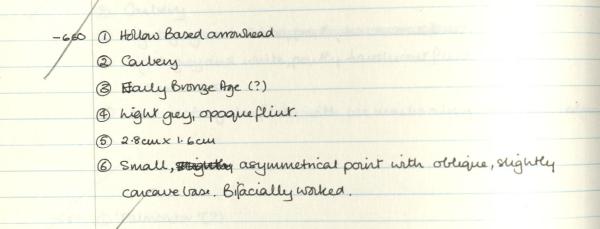 -660 ① Hollow Based arrowhead
② Carbery
③ Early Bronze Age (?)
④ Light grey, opaque flint.
⑤ 2.8cm x 1.6cm
⑥ Small, slightly asymmetrical point with oblique, slightly
concave base. Bifacially worked.